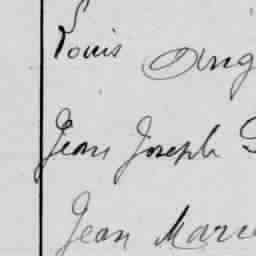 Louis Ang
Jean Joseph
Jean Marie